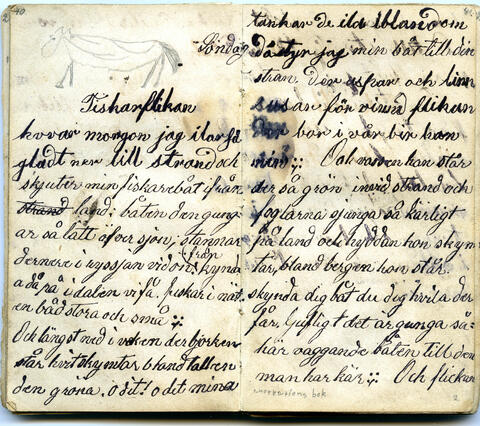 40
Söndag
Fiskarflikan
hvar morgon jag ilar så
gladt ner till strand och
skjuter min fiskarebåt ifrån
strand land; båten den gung
ar så lätt öfver sjön; stannar
dernere i ryssjan
från
då på i dalen vi få fiskar i nät
en både stora och små
Och längst ned i viken der björken
står hvit skymtar bland tallen
den gröna, o det! o det mina
tankar de ila ibland om
då styr jag min båt till din
stran. Der aspar och linn
susar för vind flikan
Den bor i vår by han
min Och rosen han står
der så grön invid strand och
foglarna sjunga så kärligt
på land och hyddan hon skym
tar, bland bergen hon står
skynda dig båt du dig hvila der
får. Ljufligt det är gunga så
här vaggande båten till den
man har kär Och flickan
bok
2